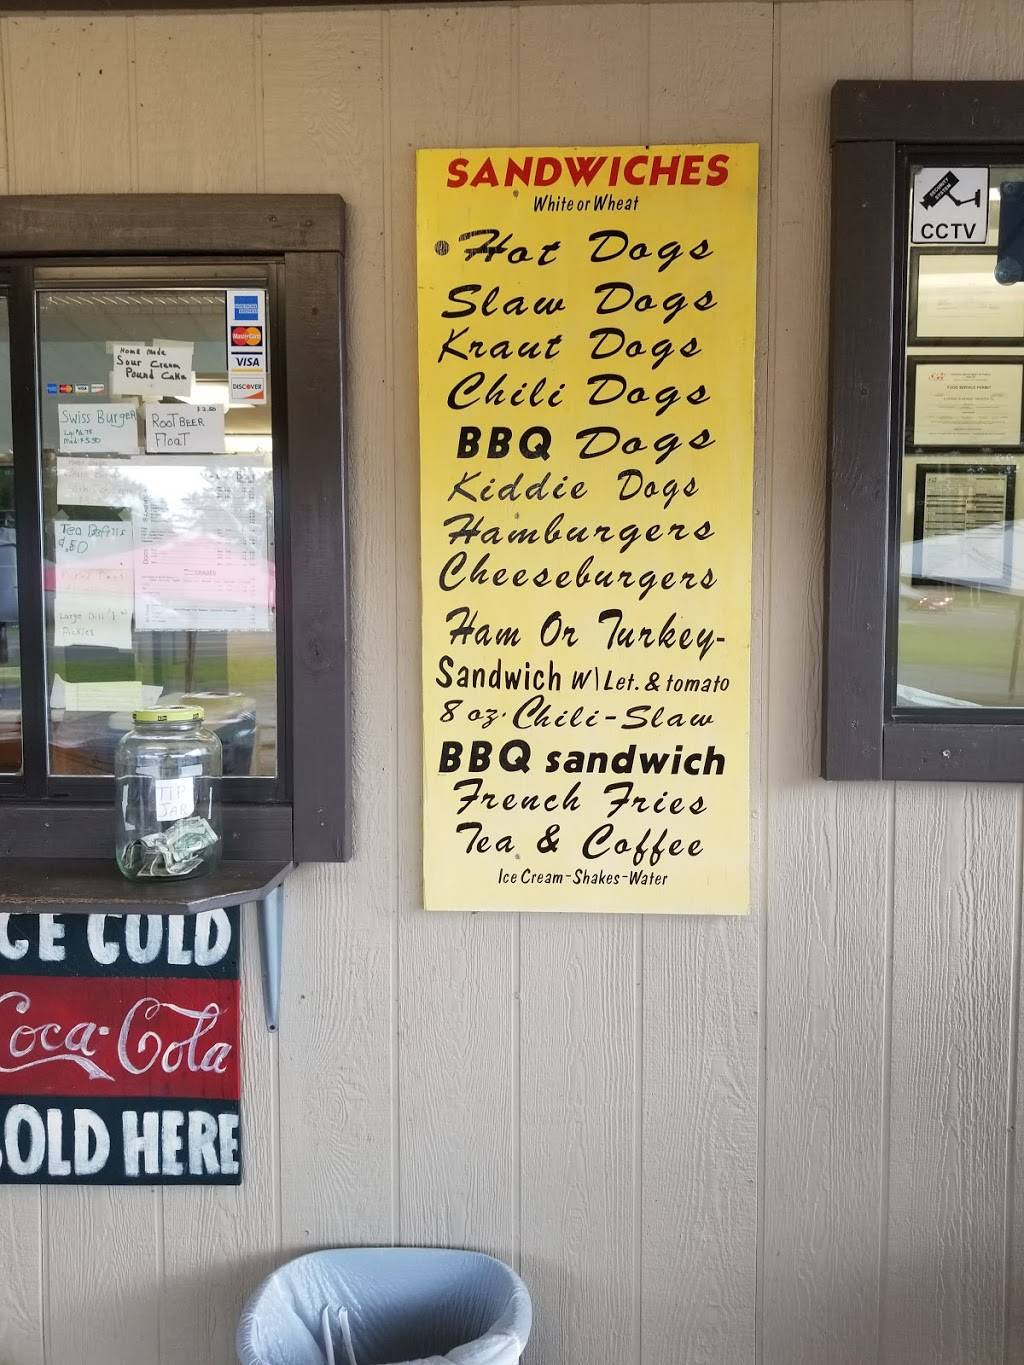 SANDWICHES
White or Wheat
Hot Dogs
Slaw Dogs
Kraut Dogs
Chili Dogs
BBQ Dogs
Kiddie Dogs
Hamburgers
Cheeseburgers
Ham Or Turkey-
Sandwich W\Let. & tomato
8 oz. Chili-Slaw
BBQ sandwich
French Fries
Tea & Coffee
Ice Cream-Shakes-Water
MasterCard
VISA
DISCOVER
Home Made
Sour Cream
Pound Cake
Swiss Burger
$2.50
ROOTBEER
Float
Tea Refills
$.50
Large Dill
Pickles
TIP
JAR
CE COLD
Coca-Cola
SOLD HERE
SECURITY
SYSTEM
CCTV